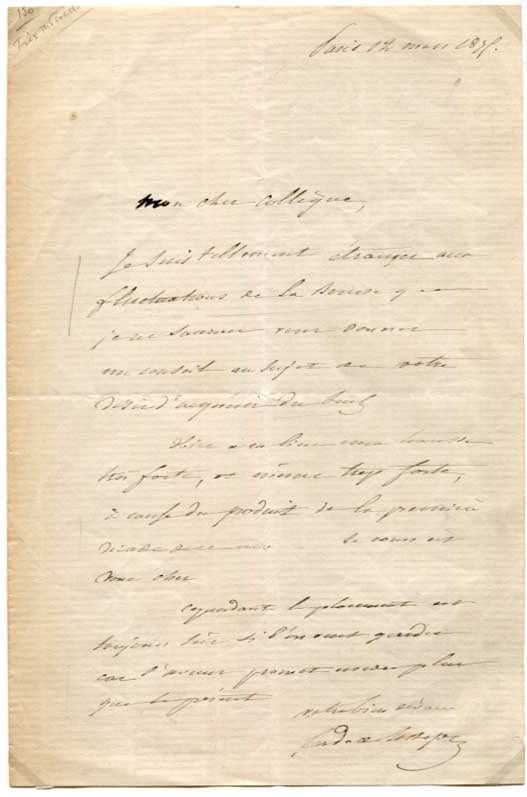 130
Paris 12 mars 187
mon cher collègue,
Je suis tellement étranger aux
fluctuations de la Bourse que
je ne saurais vous donner
un conseil au sujet de votre
désir d'acquérir du
Hier a eu lieu une hausse
très forte, et même trop forte,
à cause du produit de la première
décade de ce mois le cours est
donc cher
cependant le placement est
toujours sûr si l'on veut garder
car l'avenir promet encore plus
que le présent
votre bien dévoué
Ferd. de Lesseps